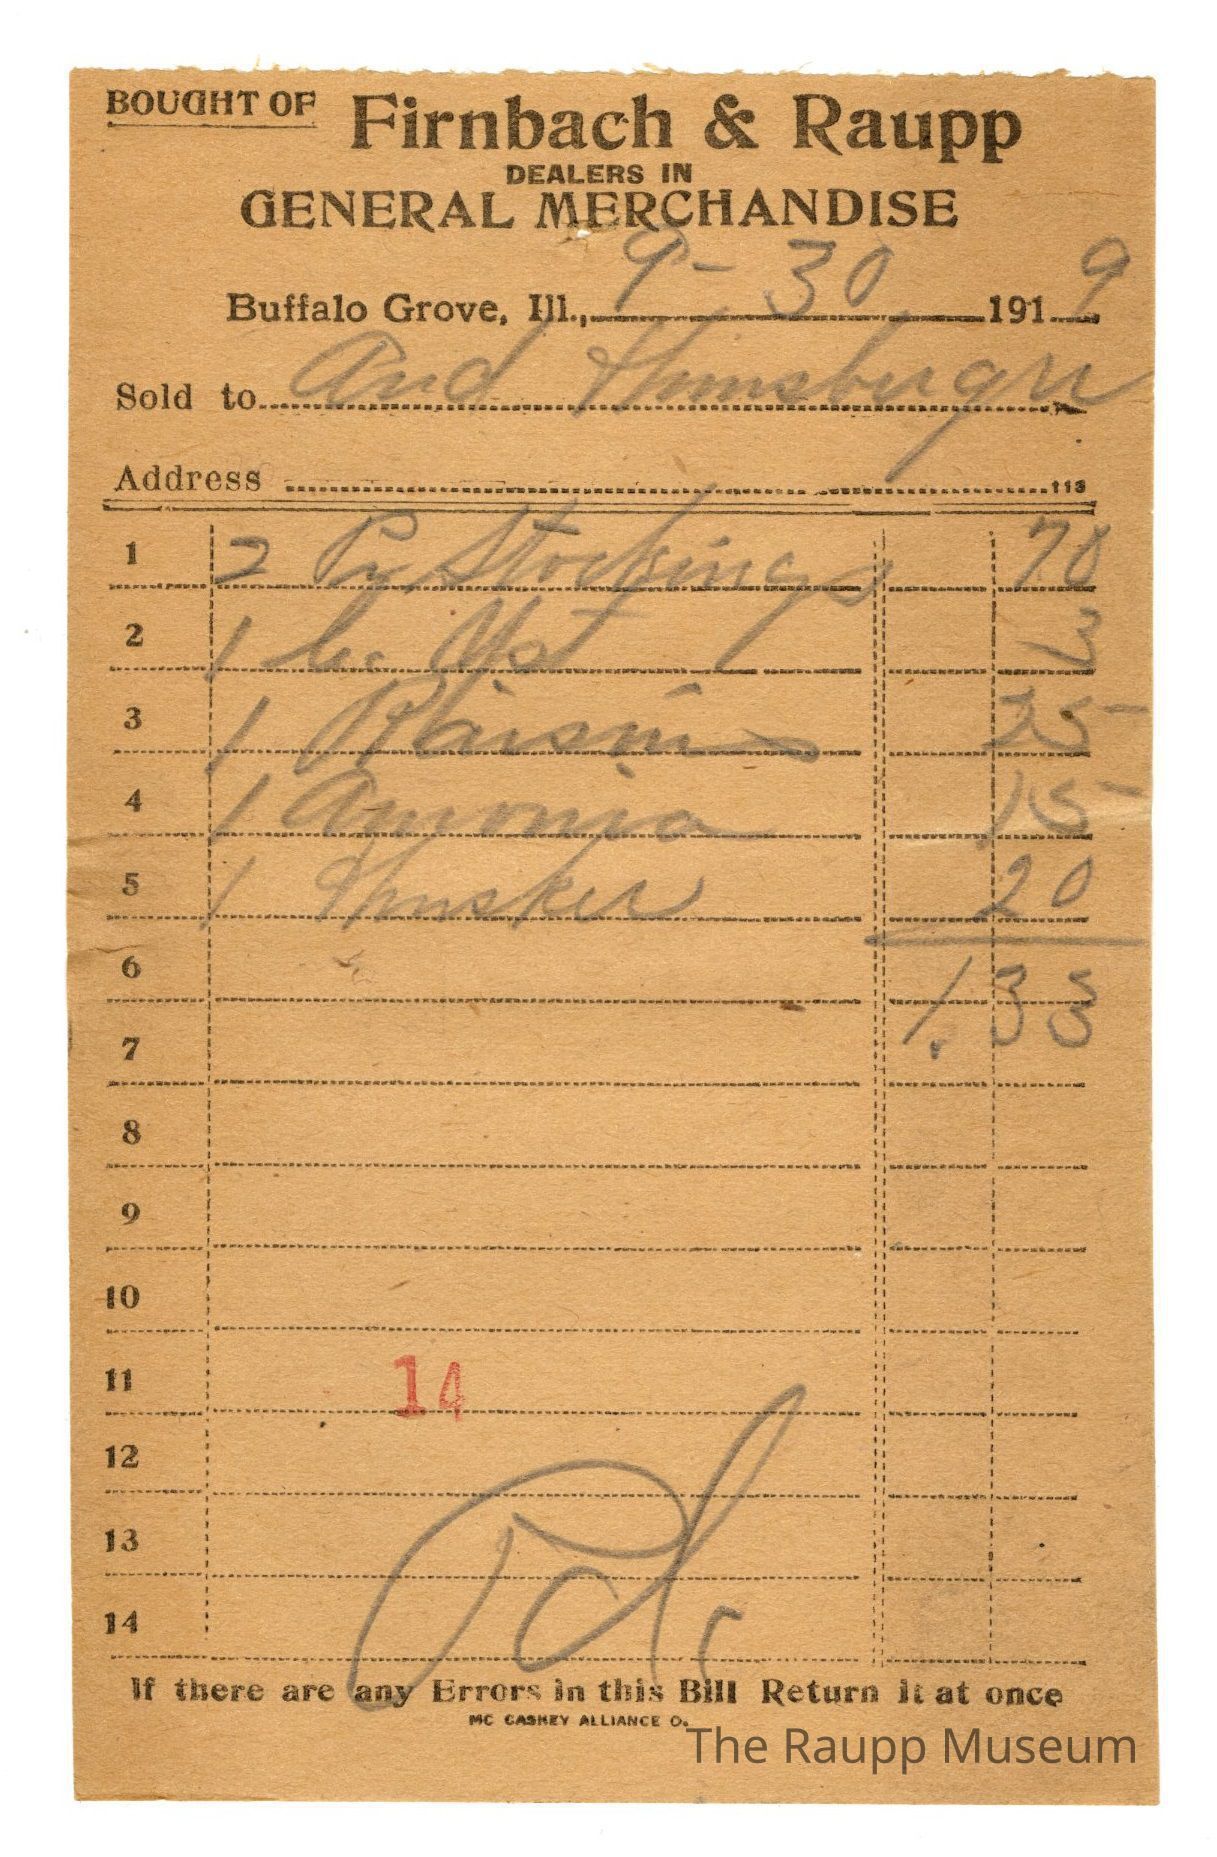 BOUGHT OF Firnbach & Raupp
DEALERS IN
GENERAL MERCHANDISE
Buffalo Grove, Ill., 9-30 1919
Sold to And
Address 113
1 2 Pr Stockings 70
2 1 Yst 3
3 1 Raisins 25
4 1 Amonia 15
5 1 Husker 20
6 1.33
7
8
9
10
11 14
12
13
14
If there are any Errors in this Bill Return it at once
MC CASKEY ALLIANCE O.
The Raupp Museum